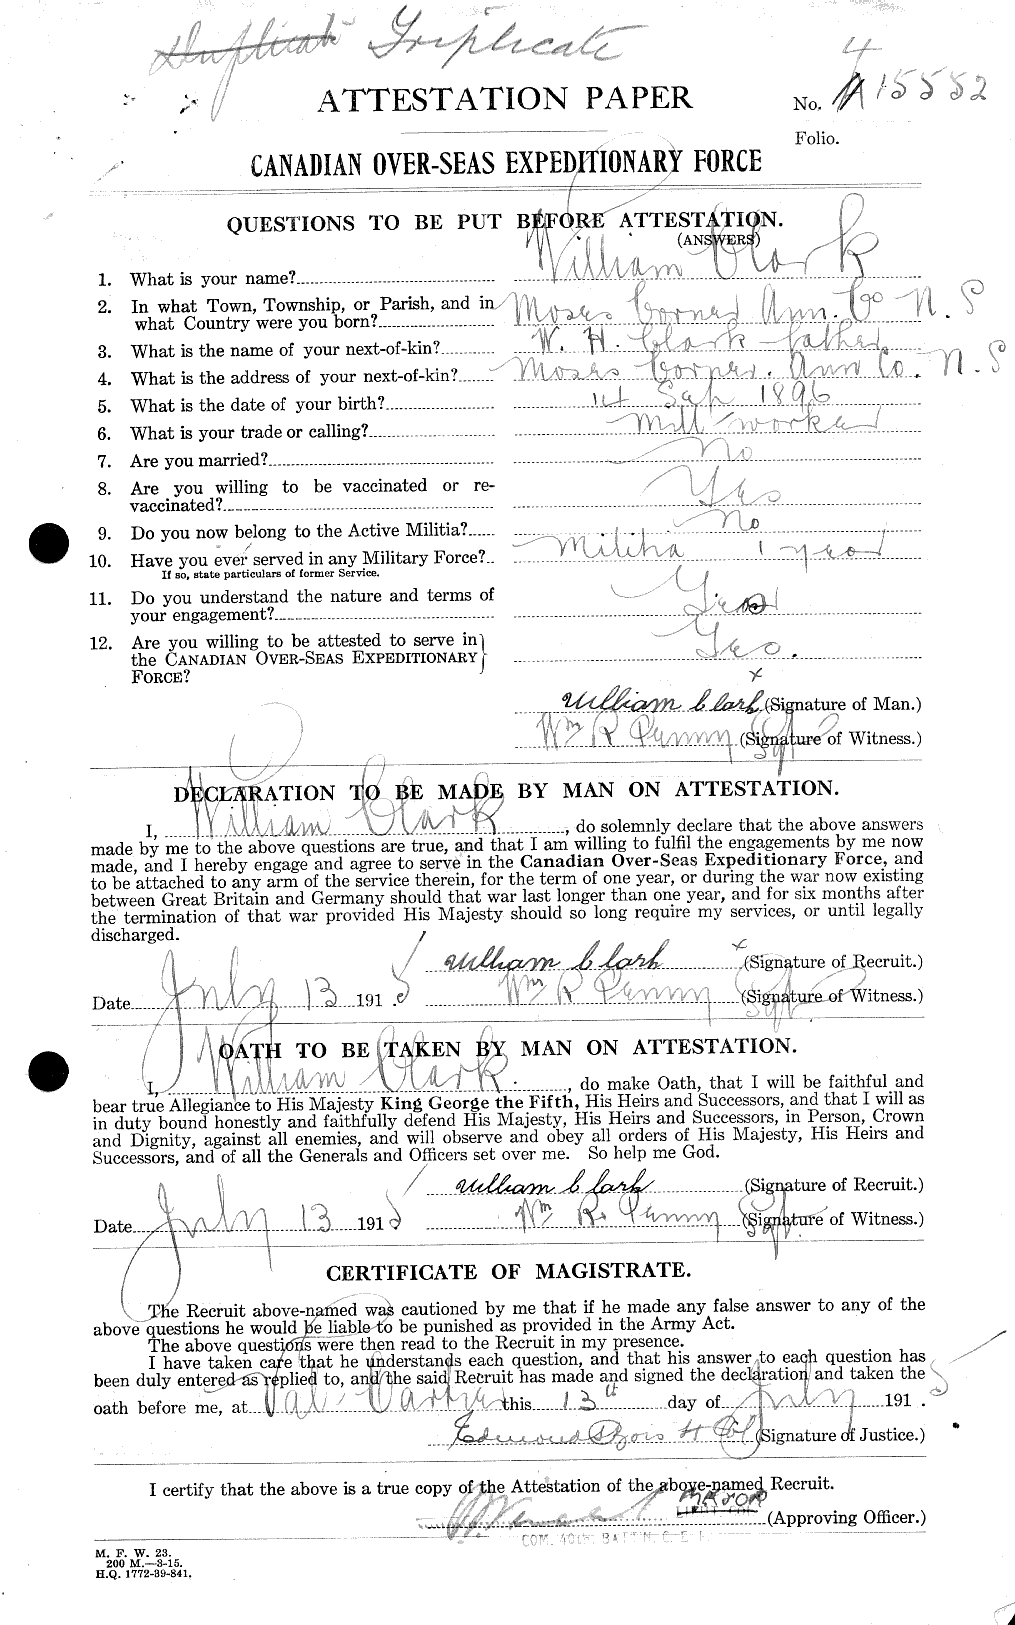 Duplicate Triplicate
4
ATTESTATION PAPER
No. A 15552
Folio.
CANADIAN OVER-SEAS EXPEDITIONARY FORCE
QUESTIONS TO BE PUT BEFORE ATTESTATION.
(ANSWERS)
1. What is your name? William Clark
2. In what Town, Township, or Parish, and in
what Country were you born? Moses Corner Ann. Co N.S
3. What is the name of your next-of-kin? W. H. Clark father
4. What is the address of your next-of-kin? Moses Corner. Ann Co. N.S
5. What is the date of your birth? 14 Sep 1896
6. What is your trade or calling? Mill worker
7. Are you married? No
8. Are you willing to be vaccinated or re-
vaccinated? Yes
9. Do you now belong to the Active Militia? No
10. Have you ever served in any Military Force? Militia 1 year
If so, state particulars of former Service.
11. Do you understand the nature and terms of
your engagement? Yes
12. Are you willing to be attested to serve in
the CANADIAN OVER-SEAS EXPEDITIONARY Yes.
FORCE?
x
William Clark (Signature of Man.)
Wm R Penny Sgt (Signature of Witness.)
DECLARATION TO BE MADE BY MAN ON ATTESTATION.
I, William Clark, do solemnly declare that the above answers
made by me to the above questions are true, and that I am willing to fulfil the engagements by me now
made, and I hereby engage and agree to serve in the Canadian Over-Seas Expeditionary Force, and
to be attached to any arm of the service therein, for the term of one year, or during the war now existing
between Great Britain and Germany should that war last longer than one year, and for six months after
the termination of that war provided His Majesty should so long require my services, or until legally
discharged.
William Clark x (Signature of Recruit.)
Date July 13 1915 Wm R Penny Sgt (Signature of Witness.)
OATH TO BE TAKEN BY MAN ON ATTESTATION.
I, William Clark, do make Oath, that I will be faithful and
bear true Allegiance to His Majesty King George the Fifth, His Heirs and Successors, and that I will as
in duty bound honestly and faithfully defend His Majesty, His Heirs and Successors, in Person, Crown
and Dignity, against all enemies, and will observe and obey all orders of His Majesty, His Heirs and
Successors, and of all the Generals and Officers set over me. So help me God.
William Clark (Signature of Recruit.)
Date July 13 1915 Wm R. Penny Sgt. (Signature of Witness.)
CERTIFICATE OF MAGISTRATE.
The Recruit above-named was cautioned by me that if he made any false answer to any of the
above questions he would be liable to be punished as provided in the Army Act.
The above questions were then read to the Recruit in my presence.
I have taken care that he understands each question, and that his answer to each question has
been duly entered as replied to, and the said Recruit has made and signed the declaration and taken the
oath before me, at Valcartier this 13th day of July 1915
Edmond (Signature of Justice.)
I certify that the above is a true copy of the Attestation of the above-named Recruit.
MAJOR
(Approving Officer.)
COM. 40th BATT'N. C. E. F.
M. F. W. 23.
200 M.—3-15.
H.Q. 1772-39-841.